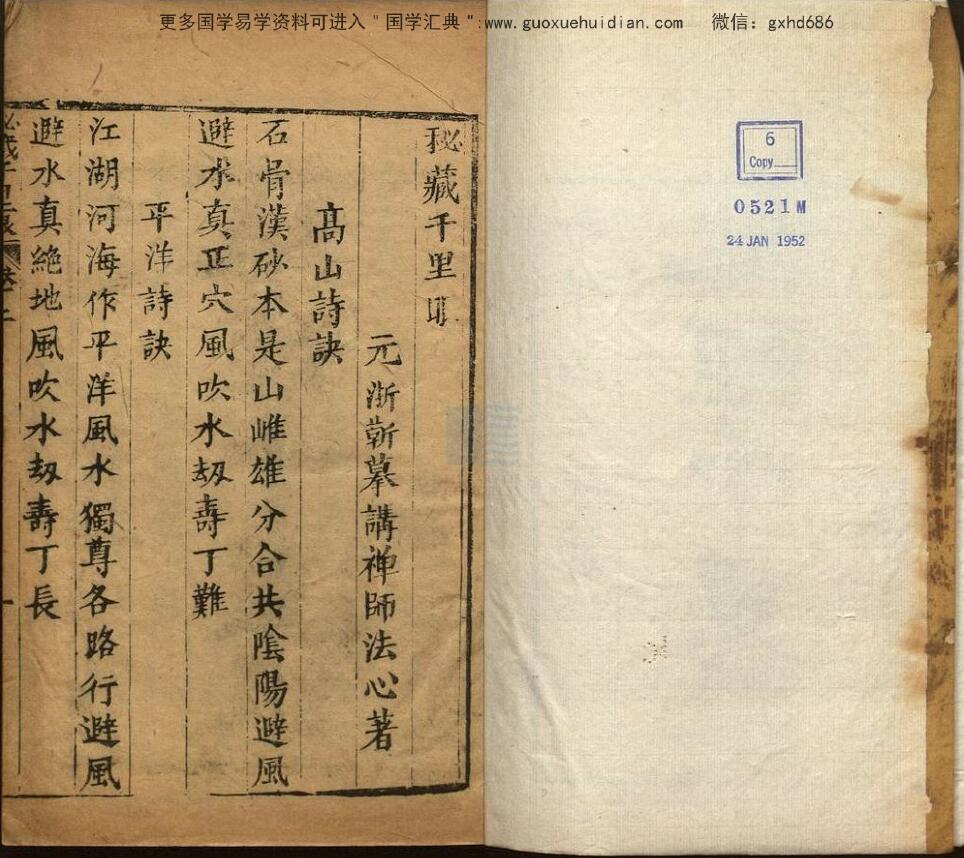 更多国学易学资料可进入＂国学汇典＂:www.guoxuehuidian.com 微信：gxhd686
秘藏千里
元浙蘄墓講禅師法心著
髙山詩訣
石骨漢砂本是山雌雄分合共陰陽避風
避水真正穴風吹水刼壽丁難
平洋詩訣
江湖河海作平洋風水獨尊各路行避風
避水真絶地風吹水刼壽丁長
一
6
Copy
0521M
24 JAN 1952